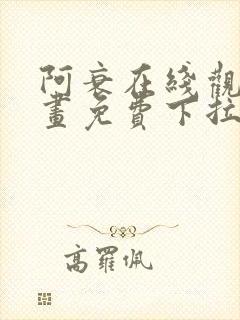 阿衰在线觀
畫免費下拉
高羅佩